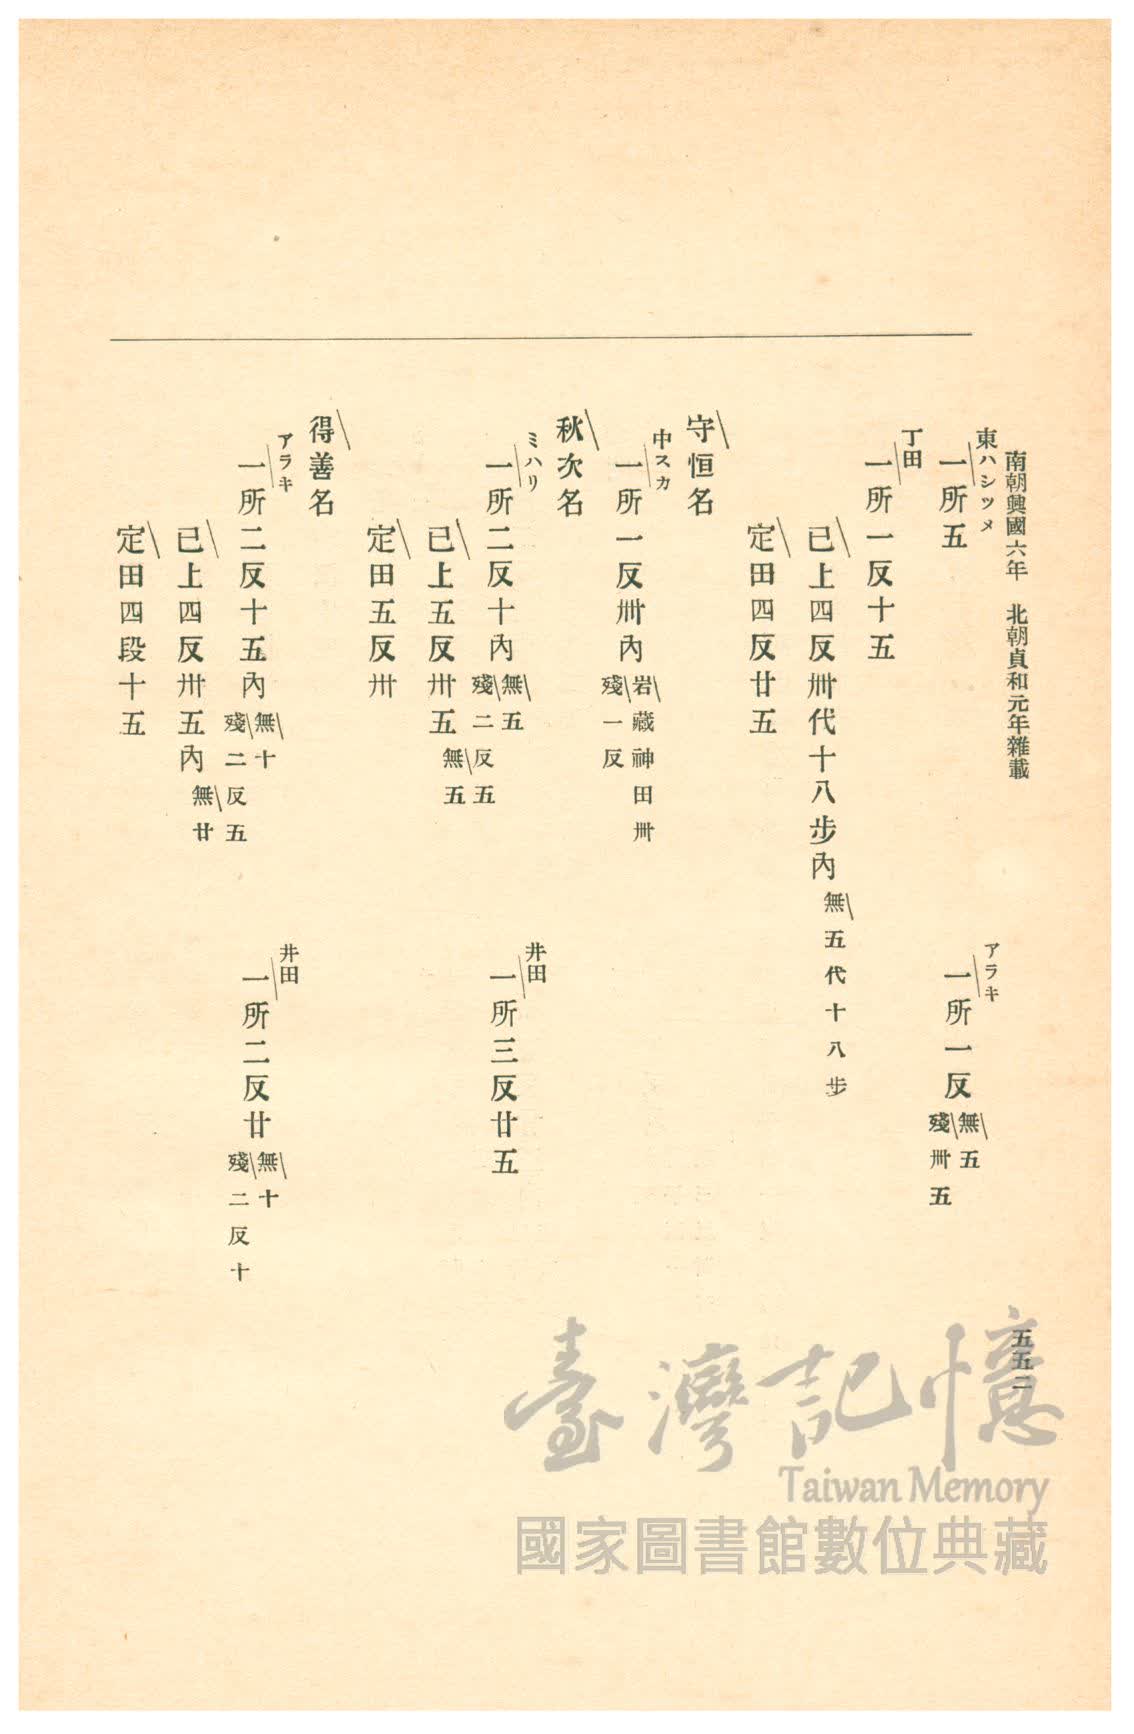 南朝興國六年　北朝貞和元年雜載
五五二
東ハシツメ
一所五
アラキ
一所一反
無五
殘卅五
丁田
一所一反十五
已上四反卅代十八步內
無五代十八步
定田四反廿五
守恒名
中スカ
一所一反卅內
岩藏神田卅
殘一反
秋次名
ミハリ
一所二反十內
無五
殘二反五
井田
一所三反廿五
已上五反卅五
無五
定田五反卅
得善名
アラキ
一所二反十五內
無十
殘二反五
井田
一所二反廿
無十
殘二反十
已上四反卅五內
無廿
定田四段十五
臺灣記憶
Taiwan Memory
國家圖書館數位典藏